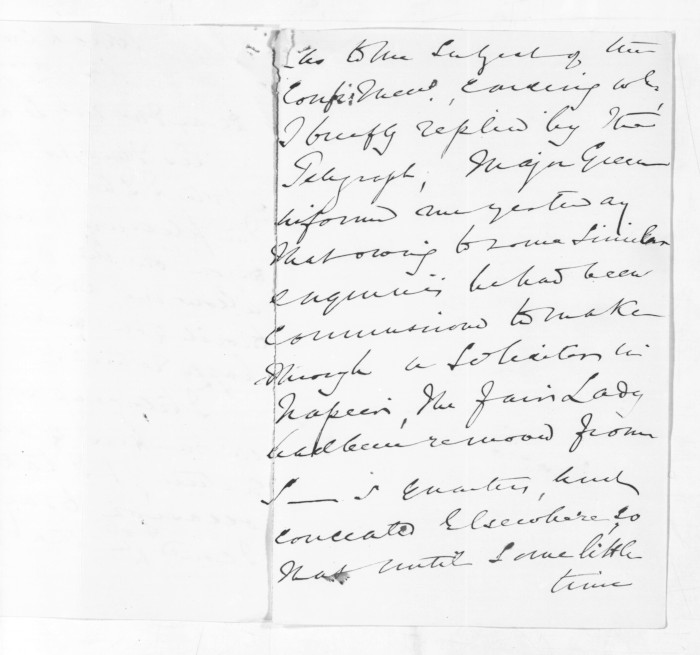 As to the Subject of the
Confinement, enquiring wh.
I briefly replied by the
Telegraph, Major Green
informed me yesterday
that owing to some similar
enquiries he had been
commissioned to make
through a Solicitor in
Napier, the fair Lady
had been removed from
S— 's quarters, and
concealed Elsewhere, so
that until some little
time